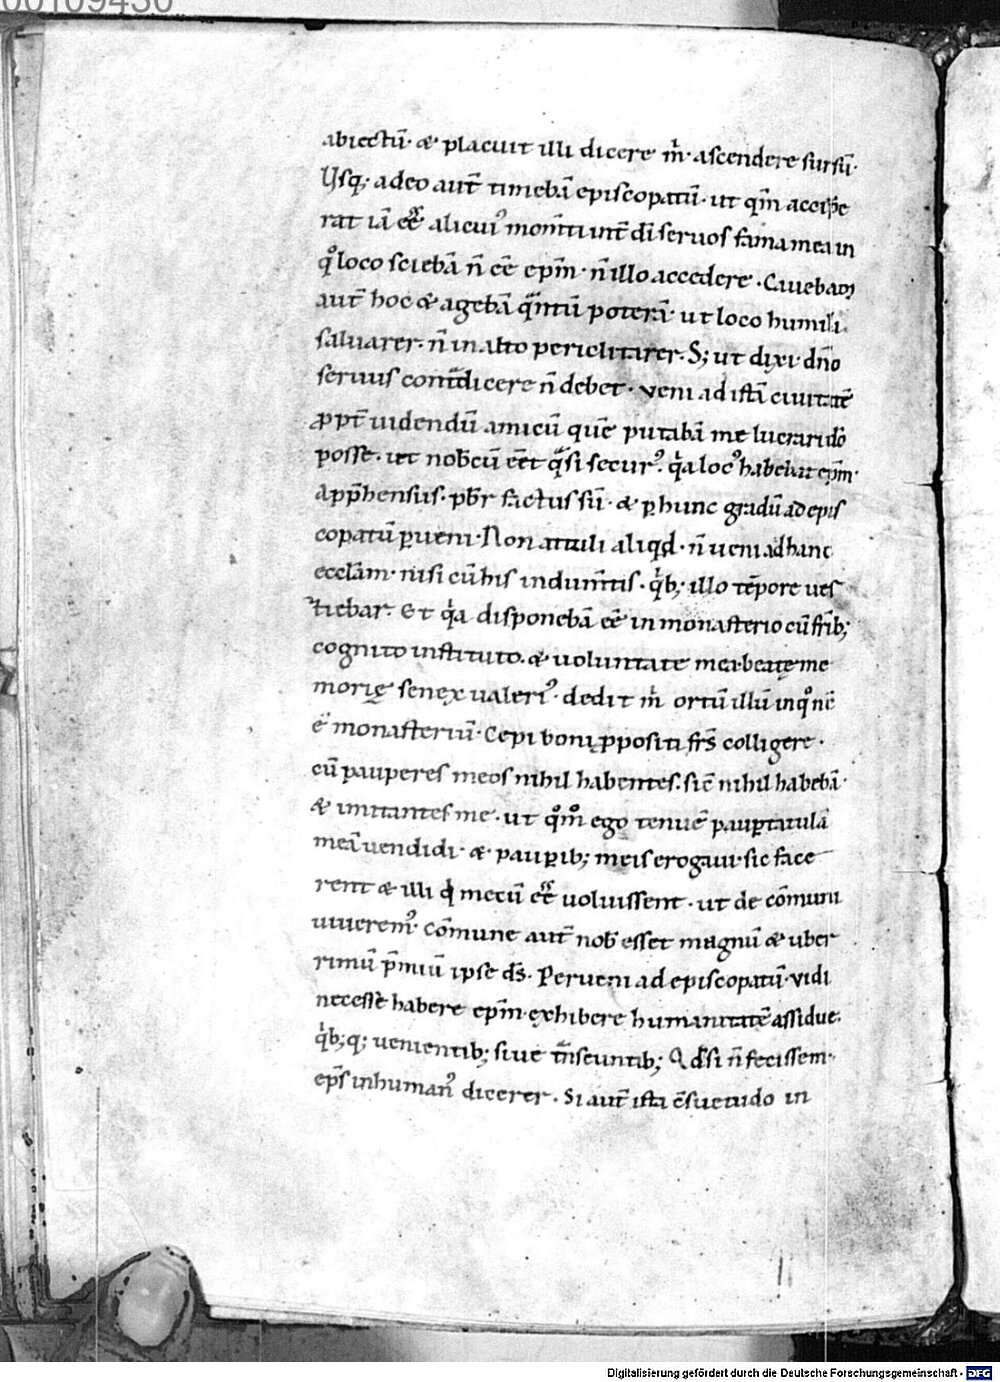 00109430
abiectū· & placuit illi dicere m̄· ascendere sursū·
Usq; adeo aut̄ timebā episcopatū· ut qm̄ accipe
rat iā eē alicui᷒ momti int̄ dī seruos fama mea in
q̊ loco sciebā n̄ eē ep̄m· n̄ illo accedere. Cauebam
aut̄ hoc & agebā qᷓntū poterā· ut loco humili
saluarer· n̄ in alto periclitarer. S; ut dixi· dn̄o
seruus cont̄dicere n̄ debet· veni ad istā ciuitatē
ꝓpt̄ uidendū amicū quē putabā me lucrari dō
posse· ut nob̄cū eēt qᷓsi secur᷒. qᷓa loc᷒ habebat ep̄m·
App̄hensus· pb̄r factus sū· & ꝑ hunc gradū ad epis
copatū ꝑueni· Non attuli aliqd· n̄ ueni ad hanc
eccl̄am· nisi cū his indum̄tis. qⁱb; illo tēpore ues
tiebar· Et qᷓa disponebā eē in monasterio cū fr̄ib;
cognito instituto· & uoluntate mea· beatę me
morię senex ualeri᷒ dedit m̄ ortū illū in q̊ nc̄
ē monasteriū· Cepi boni ꝓpositi fr̄s colligere·
cū pauperes meos nihil habentes. sic̄ nihil habebā·
& imitantes me· ut q̊m̊ ego tenuē pauꝑtatulā
meā uendidi· & pauꝑib; meis erogaui· sic face
rent & illi qⁱ mecū eē uoluissent· ut de cōmuni
uiuerem᷒· Cōmune aut̄ nob̄ esset magnū & uber
rimū p̄miū ipse ds̄. Perueni ad episcopatū· vidi
necesse habere ep̄m· exhibere humanitatē assidue·
qⁱb;q; uenientib; siue tᷓnseuntib; Qd si n̄ fecissem·
ep̄s inhuman᷒ dicerer. Si aut̄ ista c̄suetudo in
Digitalisierung gefördert durch die Deutsche Forschungsgemeinschaft - DFG